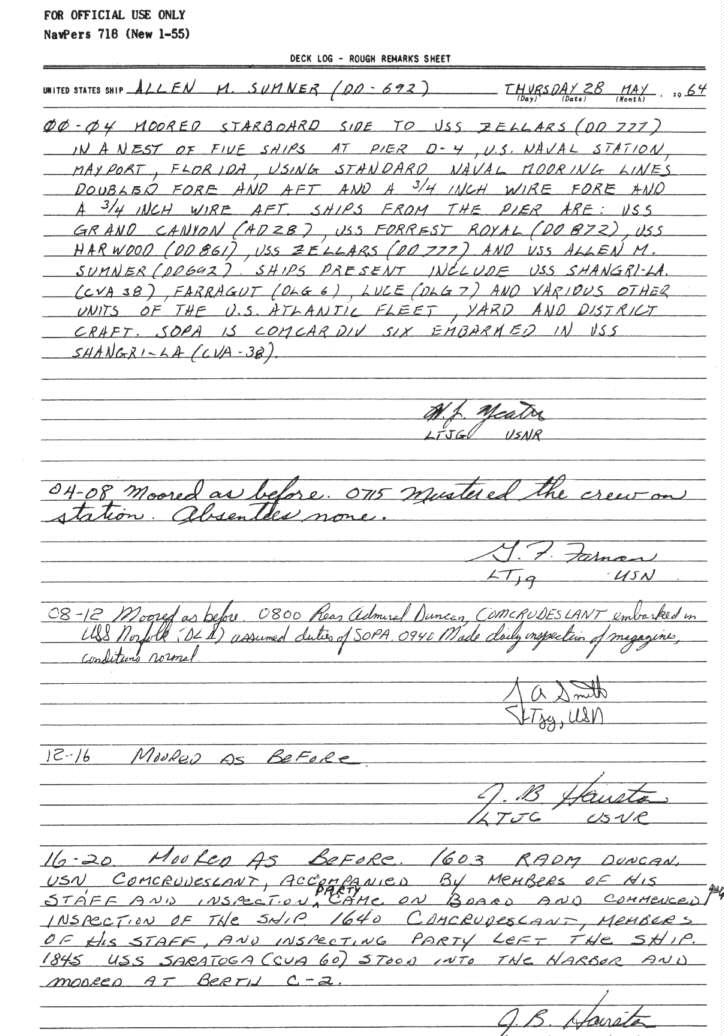 FOR OFFICIAL USE ONLY
NavPers 718 (New 1-55)
DECK LOG - ROUGH REMARKS SHEET
UNITED STATES SHIP ALLEN M. SUMNER (DD-692) THURSDAY 28 MAY, 1964
(Day) (Date) (Month)
00-04 MOORED STARBOARD SIDE TO USS ZELLARS (DD 777)
IN A NEST OF FIVE SHIPS AT PIER D-4, U.S. NAVAL STATION,
MAYPORT, FLORIDA, USING STANDARD NAVAL MOORING LINES
DOUBLED FORE AND AFT AND A 3/4 INCH WIRE FORE AND
A 3/4 INCH WIRE AFT. SHIPS FROM THE PIER ARE: USS
GRAND CANYON (AD28), USS FORREST ROYAL (DD872), USS
HARWOOD (DD861), USS ZELLARS (DD777) AND USS ALLEN M.
SUMNER (DD692). SHIPS PRESENT INCLUDE USS SHANGRI-LA
(CVA 38), FARRAGUT (DLG 6), LUCE (DLG 7) AND VARIOUS OTHER
UNITS OF THE U.S. ATLANTIC FLEET, YARD AND DISTRICT
CRAFT. SOPA IS COMCARDIV SIX EMBARKED IN USS
SHANGRI-LA (CVA-38).
LTJG USNR
04-08 Moored as before. 0715 Mustered the crew on
station. Absentees none.
G. F. Farnan
LTjg USN
08-12 Moored as before. 0800 Rear Admiral Duncan, COMCRUDESLANT embarked in
USS Norfolk (DL 1) assumed duties of SOPA. 0940 Made daily inspection of magazine,
conditions normal
J A Smith
LTjg, USN
12-16 MOORED AS BEFORE
J. B. Hairston
LTJG USNR
16-20 MOORED AS BEFORE. 1603 RADM DUNCAN,
USN COMCRUDESLANT, ACCOMPANIED BY MEMBERS OF HIS
STAFF AND INSPECTION PARTY, CAME ON BOARD AND COMMENCED
INSPECTION OF THE SHIP. 1640 COMCRUDESLANT, MEMBERS
OF HIS STAFF, AND INSPECTING PARTY LEFT THE SHIP.
1845 USS SARATOGA (CVA 60) STOOD INTO THE HARBOR AND
MOORED AT BERTH C-2.
J. B. Hairston